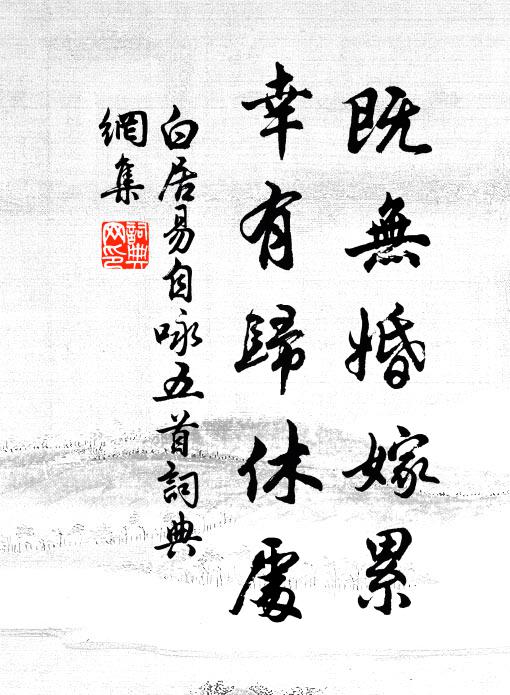 既無婚嫁累
幸有歸休處
白居易自咏五首詞典
網集
詞典
网印